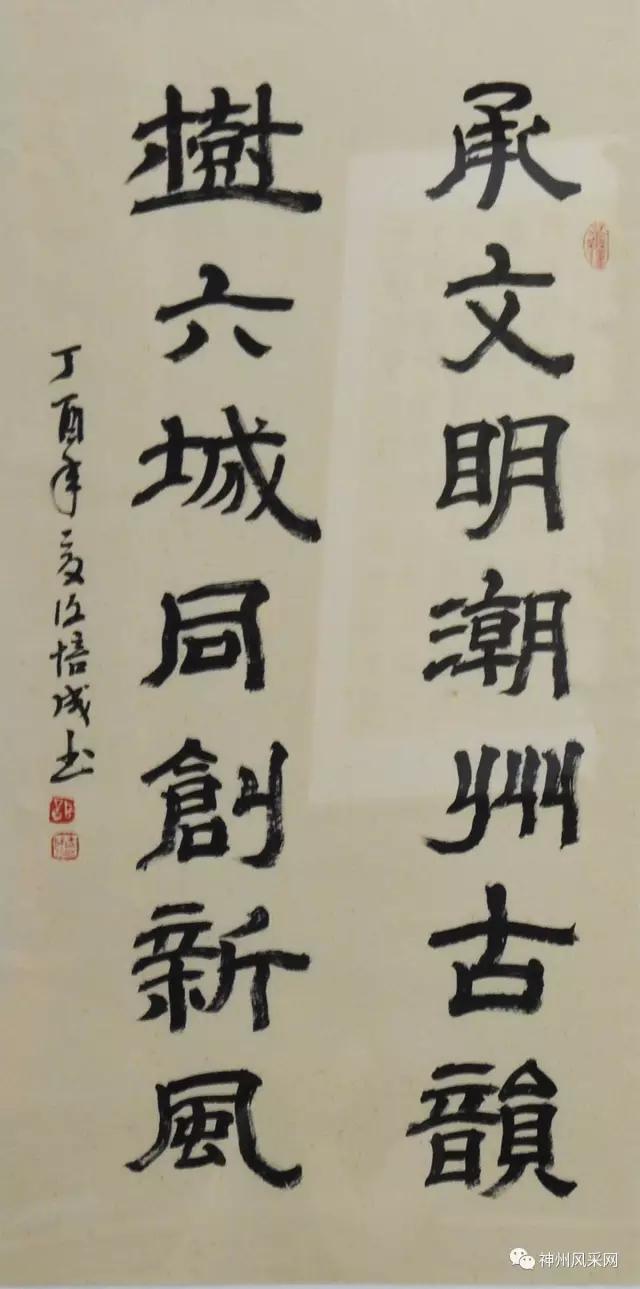 承文明潮州古韻
樹六城同創新風
丁酉年夏 培成书
神州风采网